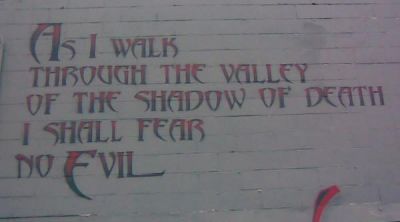 As I WALK
THROUGH THE VALLEY
OF THE SHADOW OF DEATH
I SHALL FEAR
NO EVIL